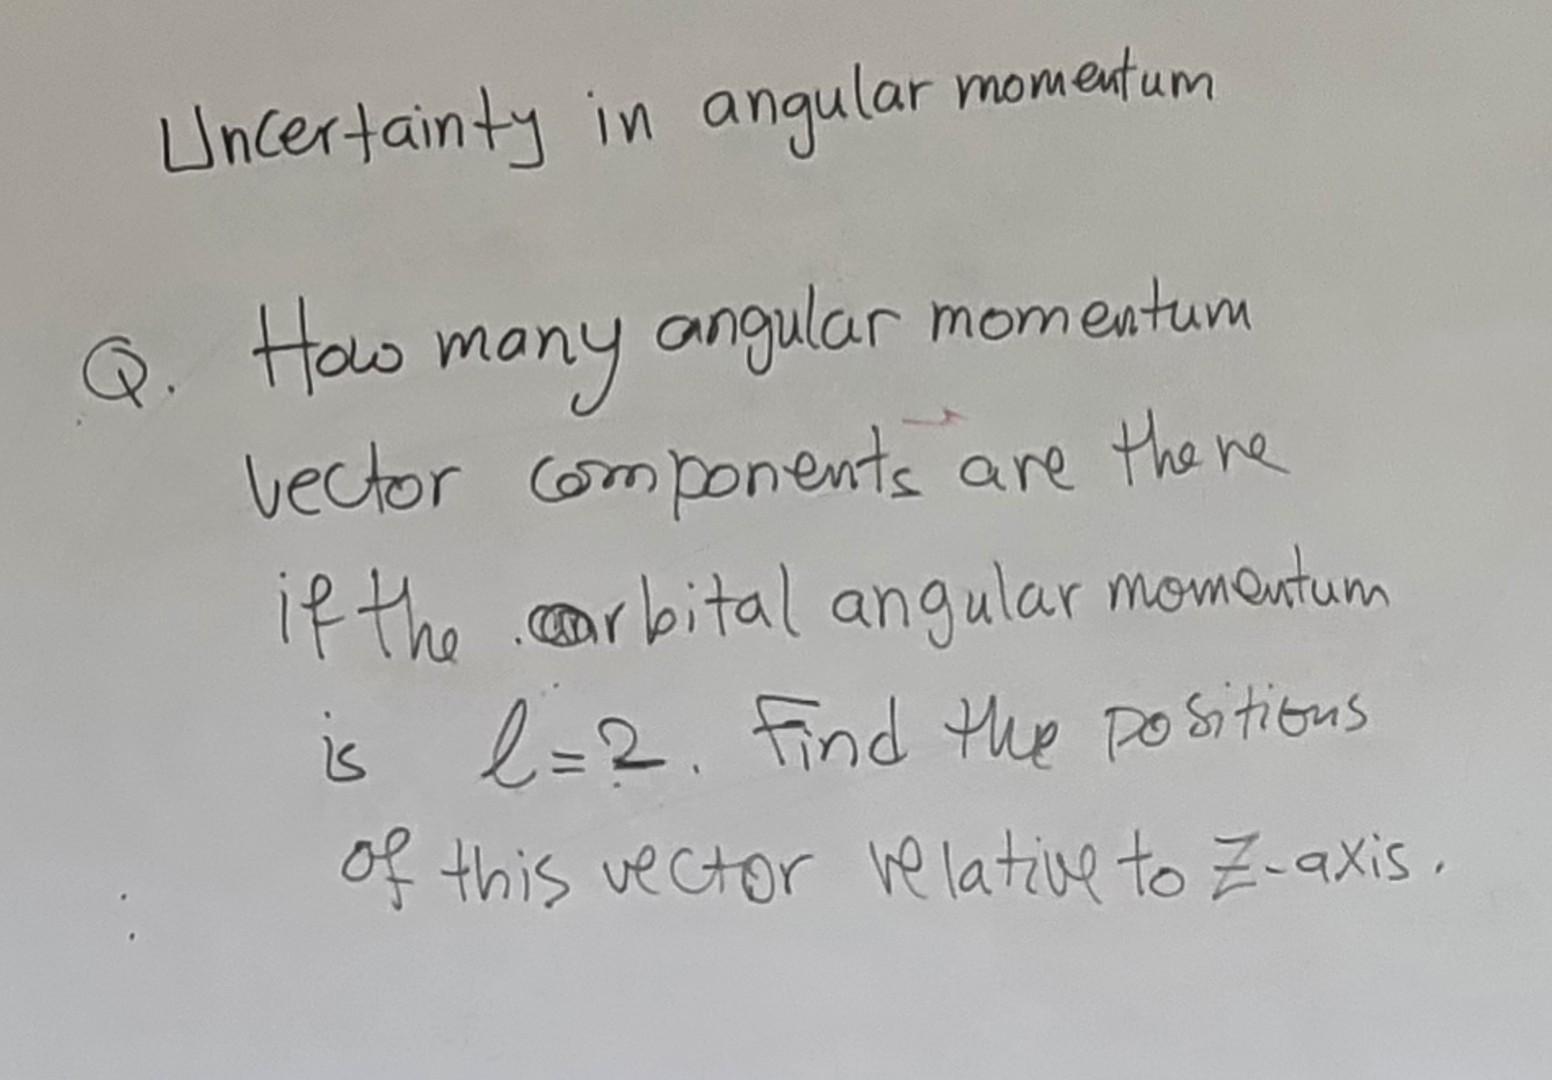 Uncertainty in angular momentum
Q. How many angular momentum
vector components are there
if the orbital angular momentum
is l=2. Find the positions
of this vector relative to Z-axis.